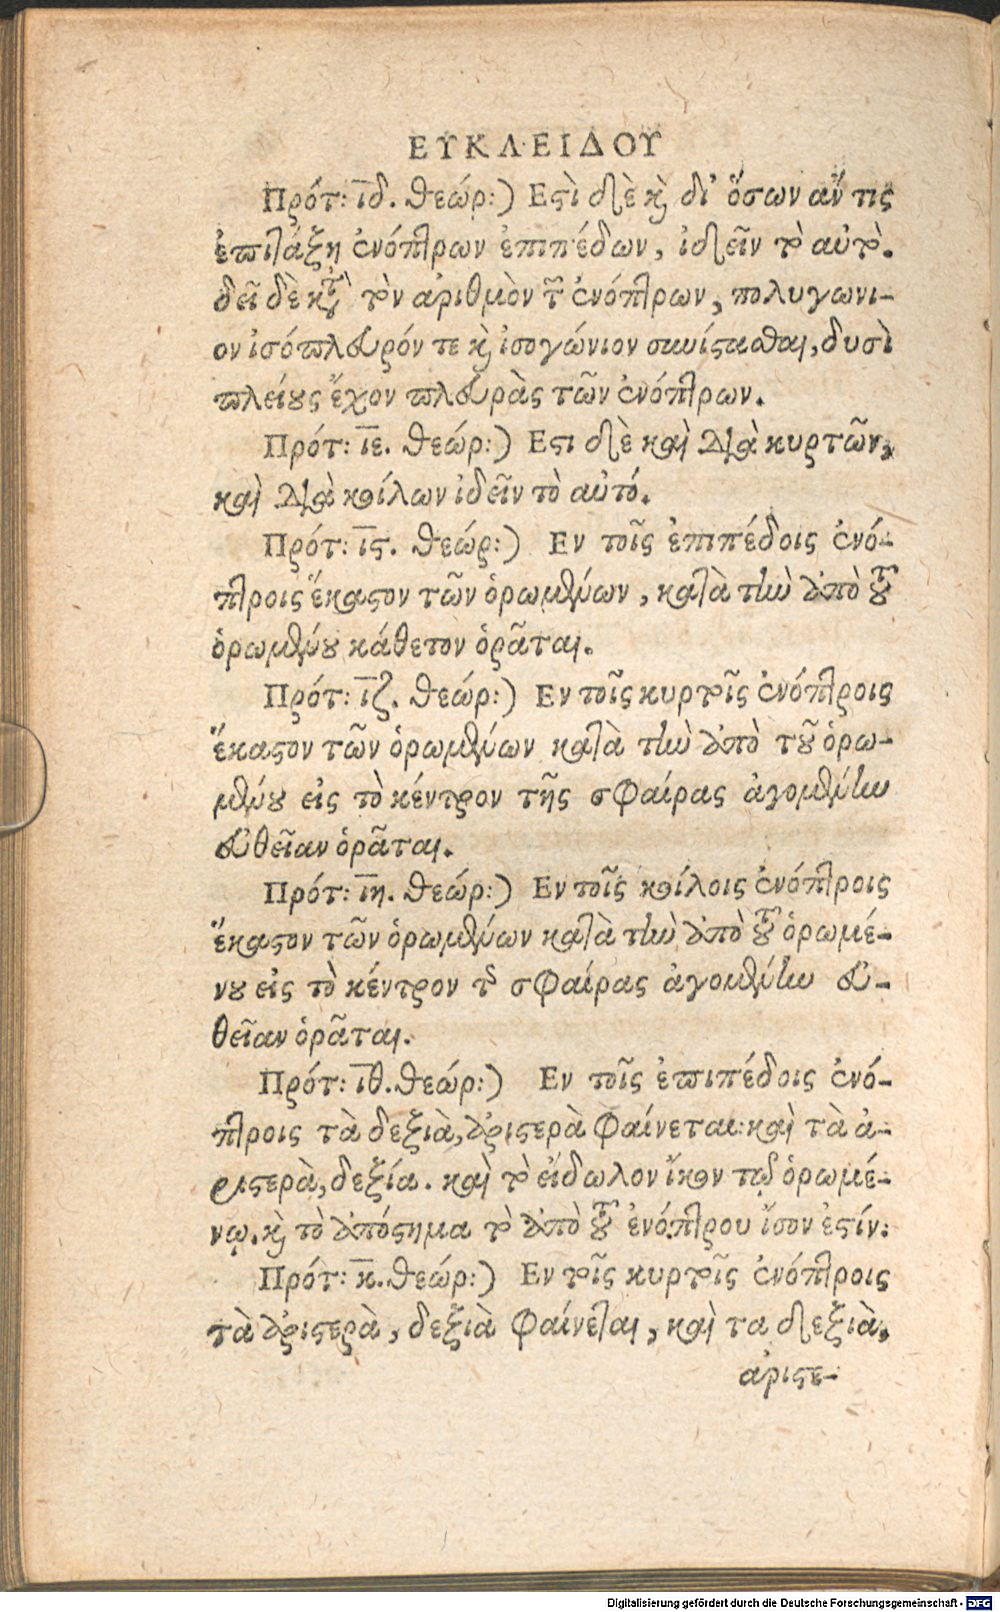 ΕΥΚΛΕΙΔΟΥ
Πρότ: ιδ. θεώρ:) Εστὶ δὲ κὶ δι' ὅσων ἄν τις
ἐπιτάξῃ ἐνόπτρων ἐπιπέδων, ἰδεῖν τὸ αὐτὸ.
δεῖ δὲ κτ τὸν ἀριθμὸν τ ἐνόπτρων, πολυγωνι-
ον ἰσόπλευρόν τε κὶ ἰσογώνιον συνίστασθαι, δυσὶ
πλείους ἔχον πλευρὰς τῶν ἐνόπτρων.
Πρότ: ιε. θεώρ:) Εστι δὲ καὶ διὰ κυρτῶν,
καὶ διὰ κοίλων ἰδεῖν τὸ αὐτό.
Πρότ: ις. θεώρ:) Εν τοῖς ἐπιπέδοις ἐνό-
πτροις ἕκαστον τῶν ὁρωμένων, κατὰ τὴν ἀπὸ τοῦ
ὁρωμένου κάθετον ὁρᾶται.
Πρότ: ιζ. θεώρ:) Εν τοῖς κυρτοῖς ἐνόπτροις
ἕκαστον τῶν ὁρωμένων κατὰ τὴν ἀπὸ τοῦ ὁρω-
μένου εἰς τὸ κέντρον τῆς σφαίρας ἀγομένην
εὐθεῖαν ὁρᾶται.
Πρότ: ιη. θεώρ:) Εν τοῖς κοίλοις ἐνόπτροις
ἕκαστον τῶν ὁρωμένων κατὰ τὴν ἀπὸ τοῦ ὁρωμέ-
νου εἰς τὸ κέντρον τ σφαίρας ἀγομένην εὐ-
θεῖαν ὁρᾶται.
Πρότ: ιθ. θεώρ:) Εν τοῖς ἐπιπέδοις ἐνό-
πτροις τὰ δεξιὰ, ἀριστερὰ φαίνεται: καὶ τὰ ἀ-
ριστερὰ, δεξία. καὶ τὸ εἴδωλον ἴκον τῷ ὁρωμέ-
νῳ. κὶ τὸ ἀπόστημα τὸ ἀπὸ τοῦ ἐνόπτρου ἴσον ἐστίν:
Πρότ: κ. θεώρ:) Εν τοῖς κυρτοῖς ἐνόπτροις
τὰ ἀριστερὰ, δεξιὰ φαίνεται, καὶ τα δεξιὰ,
ἀριστε-
Digitalisierung gefördert durch die Deutsche Forschungsgemeinschaft - DFG